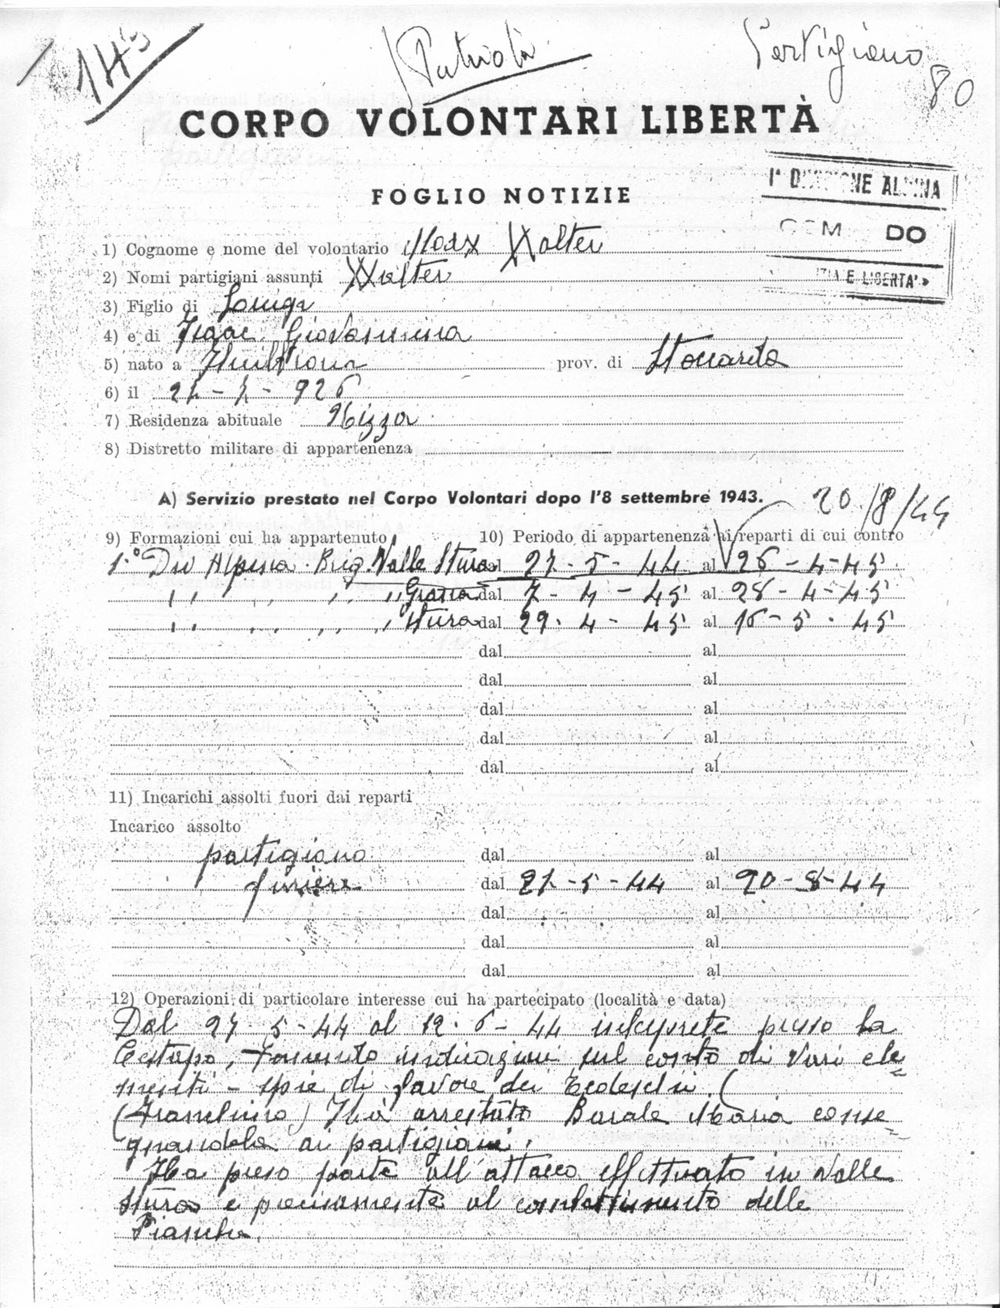 143
Patriota
Partigiano
80
CORPO VOLONTARI LIBERTÀ
FOGLIO NOTIZIE
1ª DIVISIONE ALPINA
COM DO
IZIA E LIBERTA'»
1) Cognome e nome del volontario Marx Walter
2) Nomi partigiani assunti Walter
3) Figlio di Luigi
4) e di Isaac Giovannina
5) nato a prov. di Stoccarda
6) il 926
7) Residenza abituale Nizza
8) Distretto militare di appartenenza
A) Servizio prestato nel Corpo Volontari dopo l'8 settembre 1943.
20/8/44
9) Formazioni cui ha appartenuto 10) Periodo di appartenenza ai reparti di cui contro
1ª Div Alpina Brig. Valle Stura dal 27-5-44 al 26-4-45
" " " " " dal 7-4-45 al 28-4-45
" " " " " Stura dal 29-4-45 al 16-5-45
dal al
dal al
dal al
dal al
dal al
11) Incarichi assolti fuori dai reparti
Incarico assolto
partigiano dal al
furiere dal 27-5-44 al 20-8-44
dal al
dal al
dal al
12) Operazioni di particolare interesse cui ha partecipato (località e data)
Dal 27-5-44 al 12-6-44 interprete presso la
Gestapo, fornendo indicazioni sul conto di vari ele=
menti - spie di favore dei Tedeschi (
(Franchino) Ha arrestato Barale Maria conse=
gnandola ai partigiani.
Ha preso parte all'attacco effettuato in Valle
Stura e precisamente al combattimento delle
Pianche.